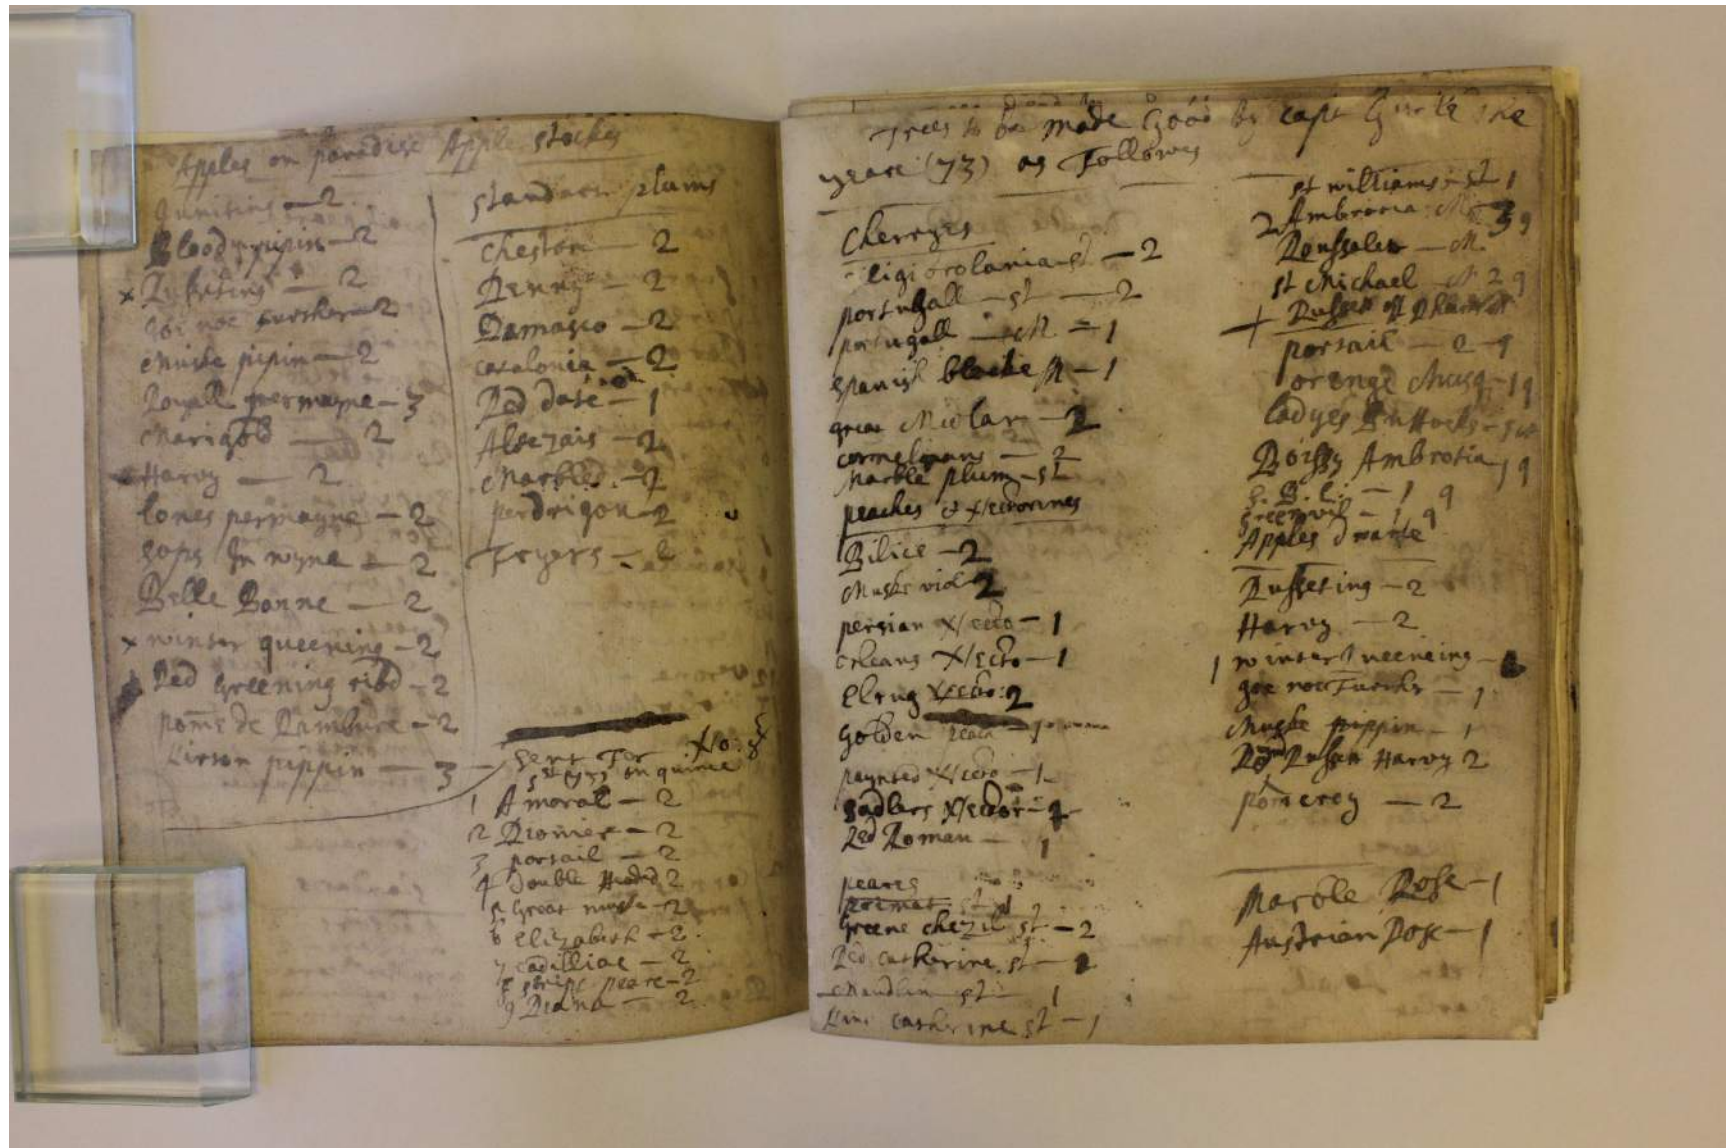 Apples on paradise Apple stockes
Juniting — 2
Bloody pipin — 2
x Russeting — 2
goe noe further — 2
Muske pipin — 2
Royall permayne — 3
Marigold — 2
Harvy — 2
lones permayne — 2
sops In wyne — 2
Belle Bonne — 2
x winter queening — 2
Red greening ribd — 2
pome de Rambure — 2
Kirson pippin — 3
standard plums
Cheston — 2
Denny — 2
Damasco — 2
catalonia — 2
Red date — 1
Alsezais — 2
Marbled — 2
perdrigon — 2
Fryers — 2
sent For
on quince
1 Amorat — 2
2 Dionier — 2
3 portail — 2
4 Double Headed 2
5 Great muske — 2
6 Elizabeth — 2
7 cadilliac — 2
8 stript peare — 2
9 Diana — 2
Trees to be made Good by capt Gurle the
yeare (73) as Followes
Cherryes
st — 2
portugall — st — 2
portugall — M — 1
spanish blacke M — 1
great Medlar — 2
cornelians — 2
Marble plum — st
peaches & Nectorines
Bilice — 2
Muske viol 2
persian Necto — 1
orleans Necto — 1
Elrug Necto: 2
Golden peach — 1
paynted Necto — 1
sadlers Nector — 1
Red Roman — 1
peares
primat st 1
Greene chezil st — 2
Red catherine st — 2
Maudlin st — 1
catherine st — 1
st williams — st 1
2 Ambrosia M 3 q
Roussalet — M.
st Michael — M 2 q
+ Russet
portail — 2 q
orenge Musq — 1 q
ladyes Buttocks
Boissy Ambrosia 1 q
— 1 q
Greenvil — 1 q
Apples dwarfe
Russeting — 2
Harvy — 2
1 winter queeneing
goe noe Furthr — 1
Muske pippin — 1
Russet Harvy 2
pomeroy — 2
Marble Rose — 1
Austrian Rose — 1